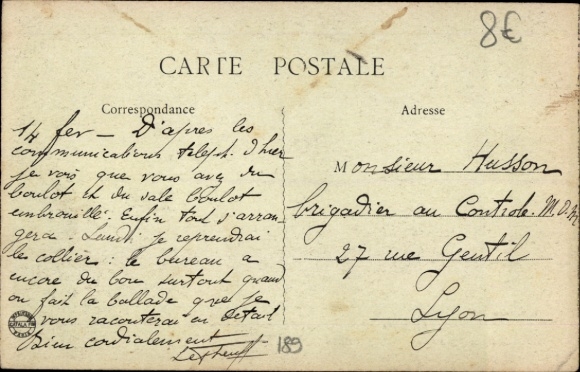 8€
CARTE POSTALE
Correspondance
Adresse
14 fev — D'après les
communications teleph. d'hier
je vois que vous avez du
boulot et du sale boulot
embrouillé. Enfin tout s'arran-
gera. Lundi je reprendrai
le collier : le bureau a
encore du bon surtout quand
on fait la ballade que je
vous raconterai en detail
Bien cordialement
189
Monsieur Husson
brigadier au Controle
27 rue Gentil
Lyon